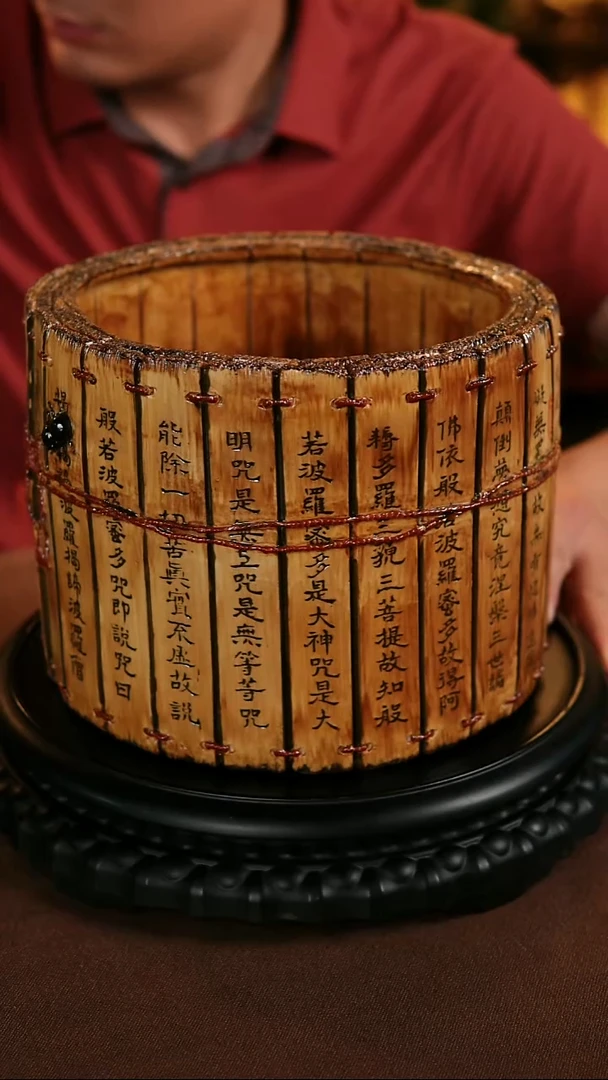 顛倒夢想究竟涅槃三世諸
佛依般若波羅蜜多故得阿
耨多羅三藐三菩提故知般
若波羅蜜多是大神咒是大
明咒是無上咒是無等等咒
能除一切苦真實不虛故說
般若波羅蜜多咒即說咒曰
揭諦波羅揭諦波羅僧